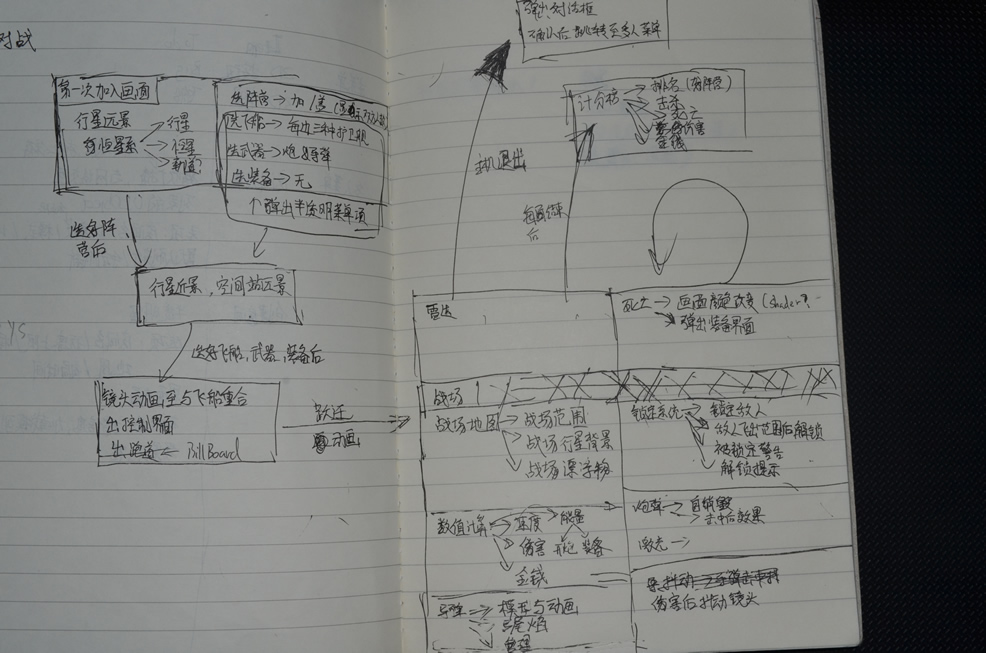 对战
第一次加入画面
行星远景
行星
恒星
轨道?
选阵营→
选飞船→每边三种护卫舰
选武器→炮&导弹
选装备→无
↑弹出半透明菜单项
选好阵
营后
行星近景,空间站远景
选好飞船,武器,装备后
镜头动画,至与飞船重合
出控制界面
出跑道←BillBoard
跃迁
动画
弹出对话框
确认后跳转至多人菜单
主机退出
计分榜
排名(按阵营)
击杀
死亡
伤害
金钱
每局结束
后
雷达
死亡→画面颜色改变(Shader?
弹出装备界面
战场
战场地图→战场范围
战场行星背景
战场漂浮物
锁定系统→锁定敌人
敌人飞出范围后解锁
被锁定警告
解锁提示
数值计算→速度
能量
伤害
装备
金钱
炮弹→自销毁
击中后效果
激光→
导弹→模型与动画
尾焰
管理
伤害后抖动镜头